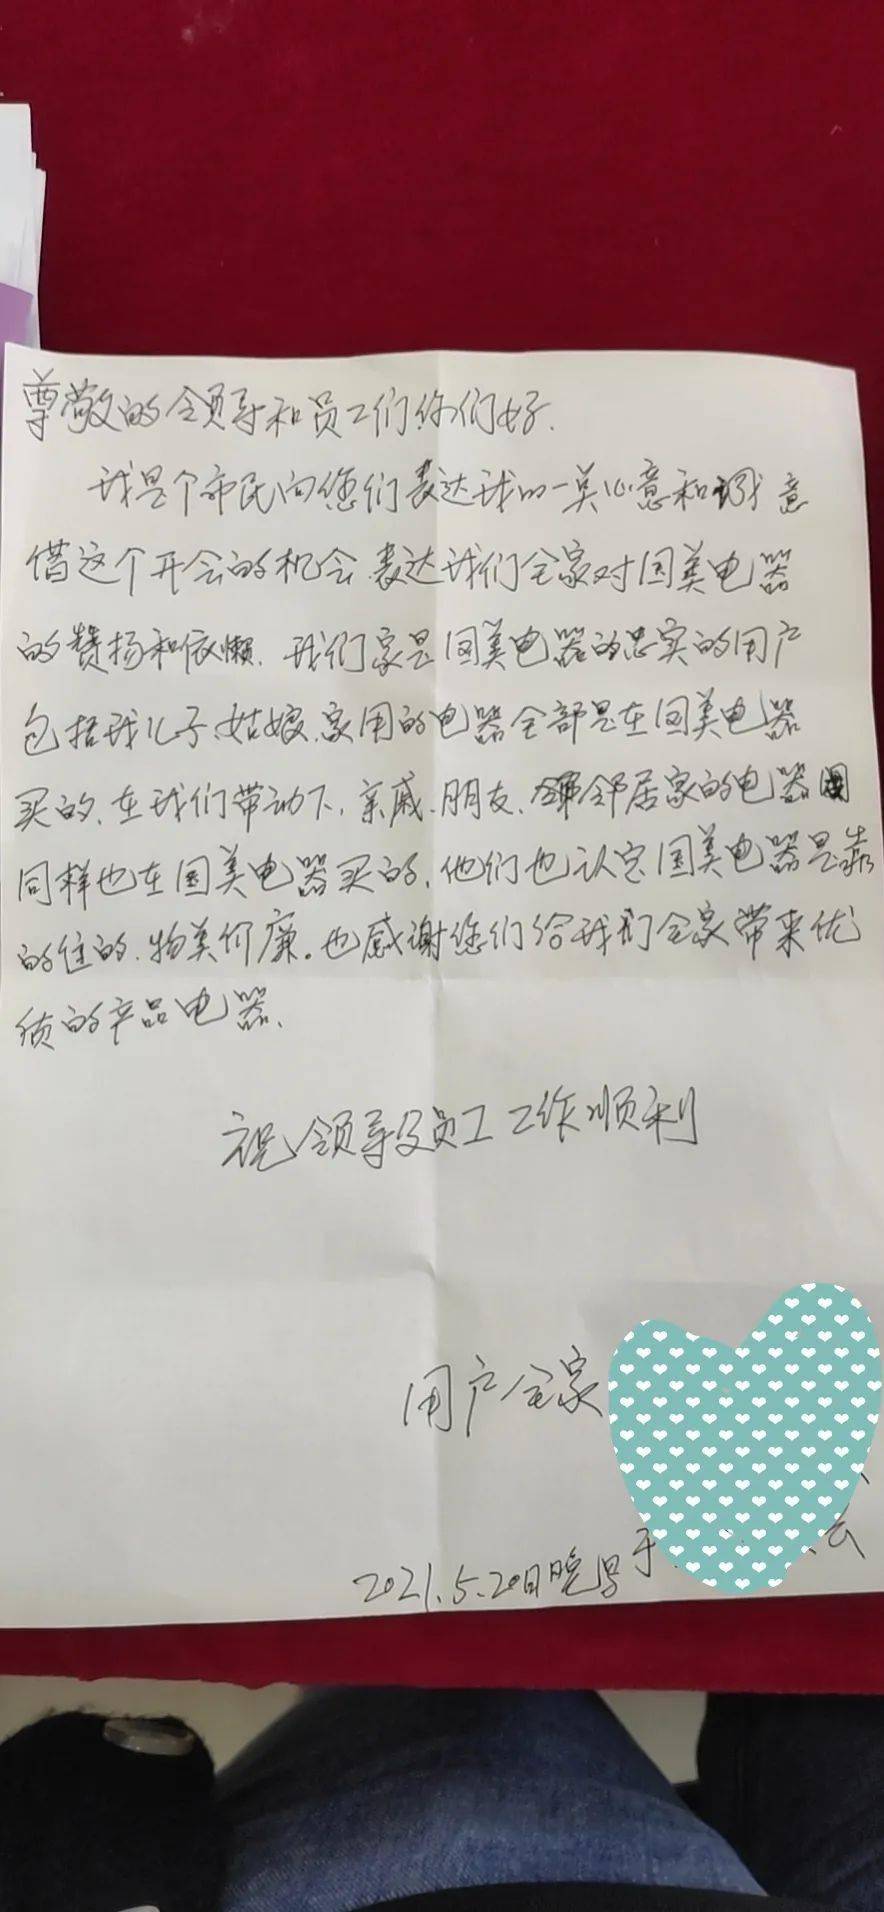 尊敬的领导和员工们你们好.
我是个市民向您们表达我的一点心意和谢意
借这个开会的机会.表达我们全家对国美电器
的赞扬和依懒.我们家是国美电器的忠实的用户
包括我儿子、姑娘、家用的电器全部是在国美电器
买的、在我们带动下、亲戚、朋友、邻居家的电器
同样也在国美电器买的,他们也认定国美电器是靠
的住的、物美价廉。也感谢您们给我们全家带来优
质的产品电器、
祝领导及员工工作顺利
用户全家
2021.5.20日晚